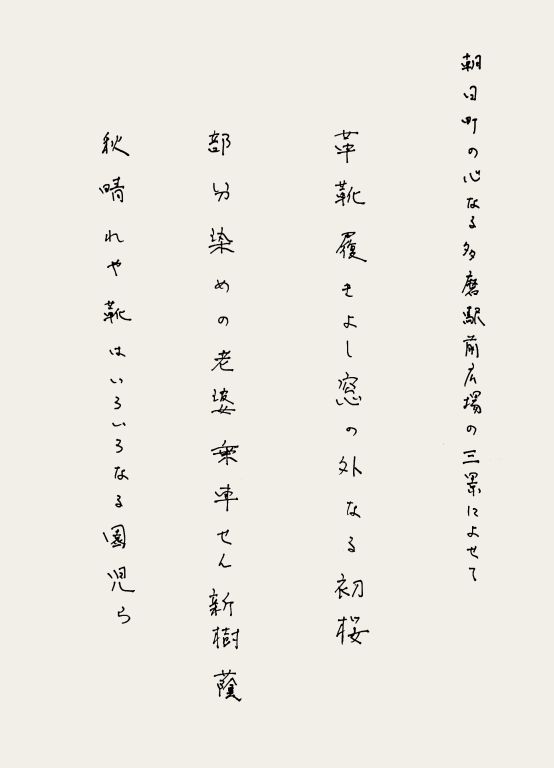 朝日町の心なる多磨駅前広場の三景によせて
革靴履きよし窓の外なる初桜
部分染めの老婆乗車せん新樹蔭
秋晴れや靴はいろいろなる園児ら